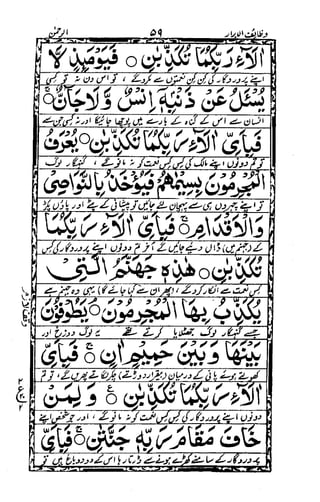 وظائف الابرار ۵۹ الرحمٰن
الَآءِ رَبِّكُمَا تُكَذِّبٰنِ ۝ فَيَوْمَئِذٍ لَّا
اپنے پروردگار کی کن کن نعمتوں سے مکرو گے ، تو اس دن نہ تو کسی
يُسْئَلُ عَنْ ذَنْۢبِهٖٓ اِنْسٌ وَّلَا جَآنٌّ ۝
انسان سے اس کے گناہ کے بارے میں پوچھا جائیگا اور نہ کسی جن سے
فَبِاَيِّ اٰلَآءِ رَبِّكُمَا تُكَذِّبٰنِ ۝ يُعْرَفُ
تو تم دونوں اپنے مالک کی کس کس نعمت کو نہ مانو گے ، گنہگار لوگ
الْمُجْرِمُوْنَ بِسِيْمٰهُمْ فَيُؤْخَذُ بِالنَّوَاصِيْ
تو اپنے چہروں ہی سے پہچان لئے جائیں گے تو پیشانی کے پٹے اور پاؤں پکڑ
وَالْاَقْدَامِ ۝ فَبِاَيِّ اٰلَآءِ رَبِّكُمَا
کے (جہنم میں) ڈال دیے جائیں گے آخر تم دونوں اپنے پروردگار کی کس
تُكَذِّبٰنِ ۝ هٰذِهٖ جَهَنَّمُ الَّتِيْ
کس نعمت سے انکار کرو گے ، (پھر ان سے کہا جائے گا) یہی وہ جہنم ہے
يُكَذِّبُ بِهَا الْمُجْرِمُوْنَ ۝ يَطُوْفُوْنَ
جسے گنہگار لوگ جھٹلایا کرتے تھے یہ لوگ دوزخ اور
بَيْنَهَا وَبَيْنَ حَمِيْمٍ اٰنٍ ۝ فَبِاَيِّ
کھولتے ہوئے پانی کے درمیان (بیقرار دوڑتے) چکر لگاتے پھریں گے، تو تم
اٰلَآءِ رَبِّكُمَا تُكَذِّبٰنِ ۝ وَلِمَنْ
دونوں اپنے پروردگار کی کس کس نعمت کو نہ مانو گے ، اور جو شخص اپنے
خَافَ مَقَامَ رَبِّهٖ جَنَّتٰنِ ۝ فَبِاَيِّ
پروردگار کے سامنے کھڑے ہونے سے ڈرتا رہا اس کے دو دو باغ ہیں تو تم